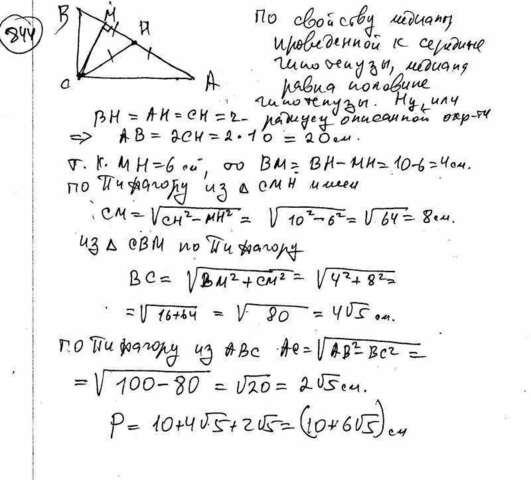 844
B M H
C A
По свойству медианы,
проведенной к середине
гипотенузы, медиана
равна половине
гипотенузы. Ну, или
BH = AH = CH = r - радиусу описанной окр-ти
=> AB = 2CH = 2·10 = 20 см.
т.к. MH = 6 см, то BM = BH - MH = 10-6 = 4 см.
По Пифагору из △ CMH имеем
CM = √CH²-MH² = √10²-6² = √64 = 8 см.
из △ CBM по Пифагору
BC = √BM²+CM² = √4²+8² =
= √16+64 = √80 = 4√5 см.
по Пифагору из ABC AC = √AB²-BC² =
= √100-80 = √20 = 2√5 см.
P = 10+4√5+2√5 = (10+6√5) см